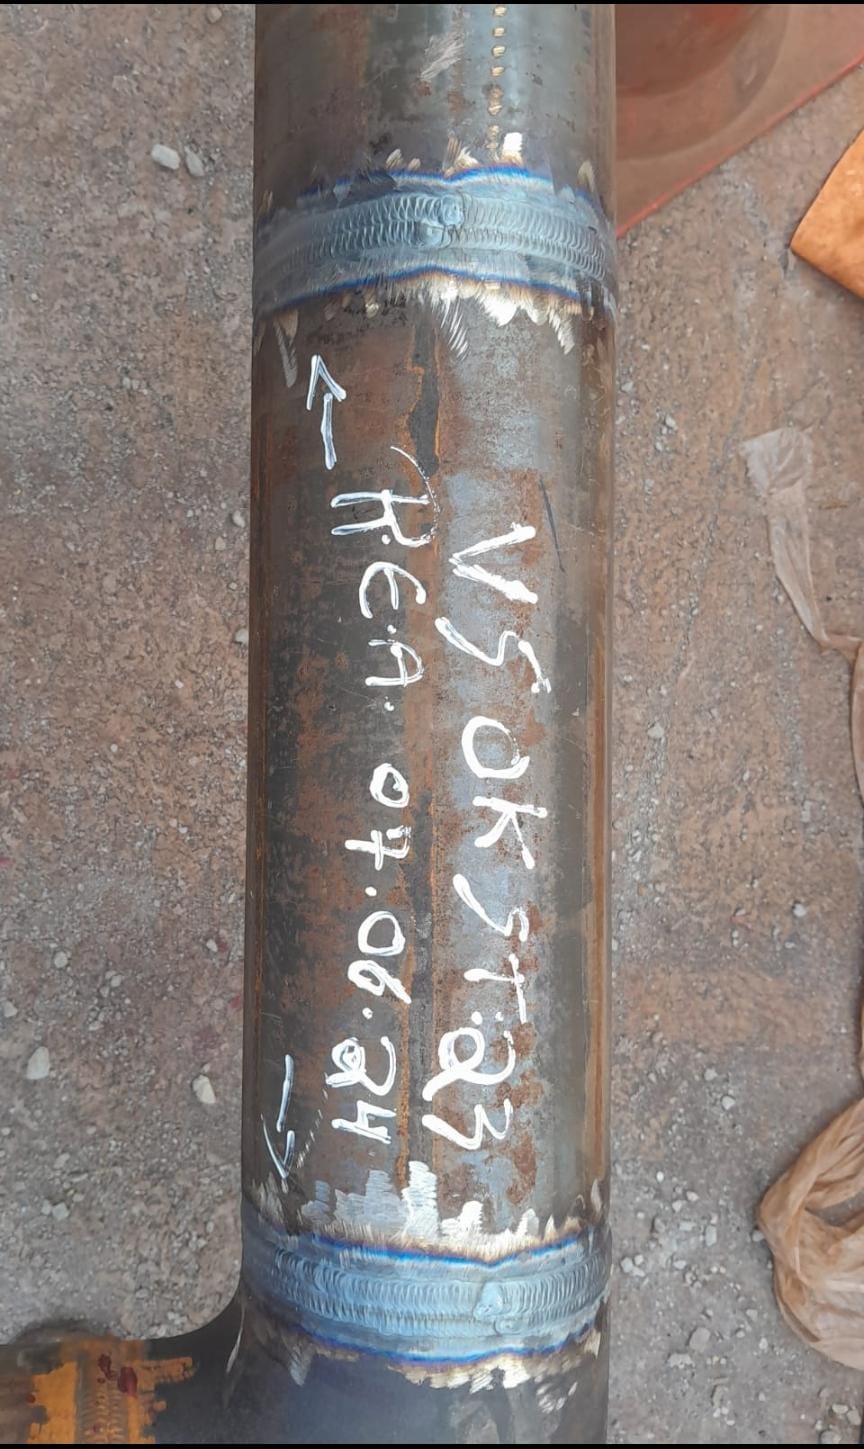 VS OK ST.23
← R.E.A. 07.06.24 →